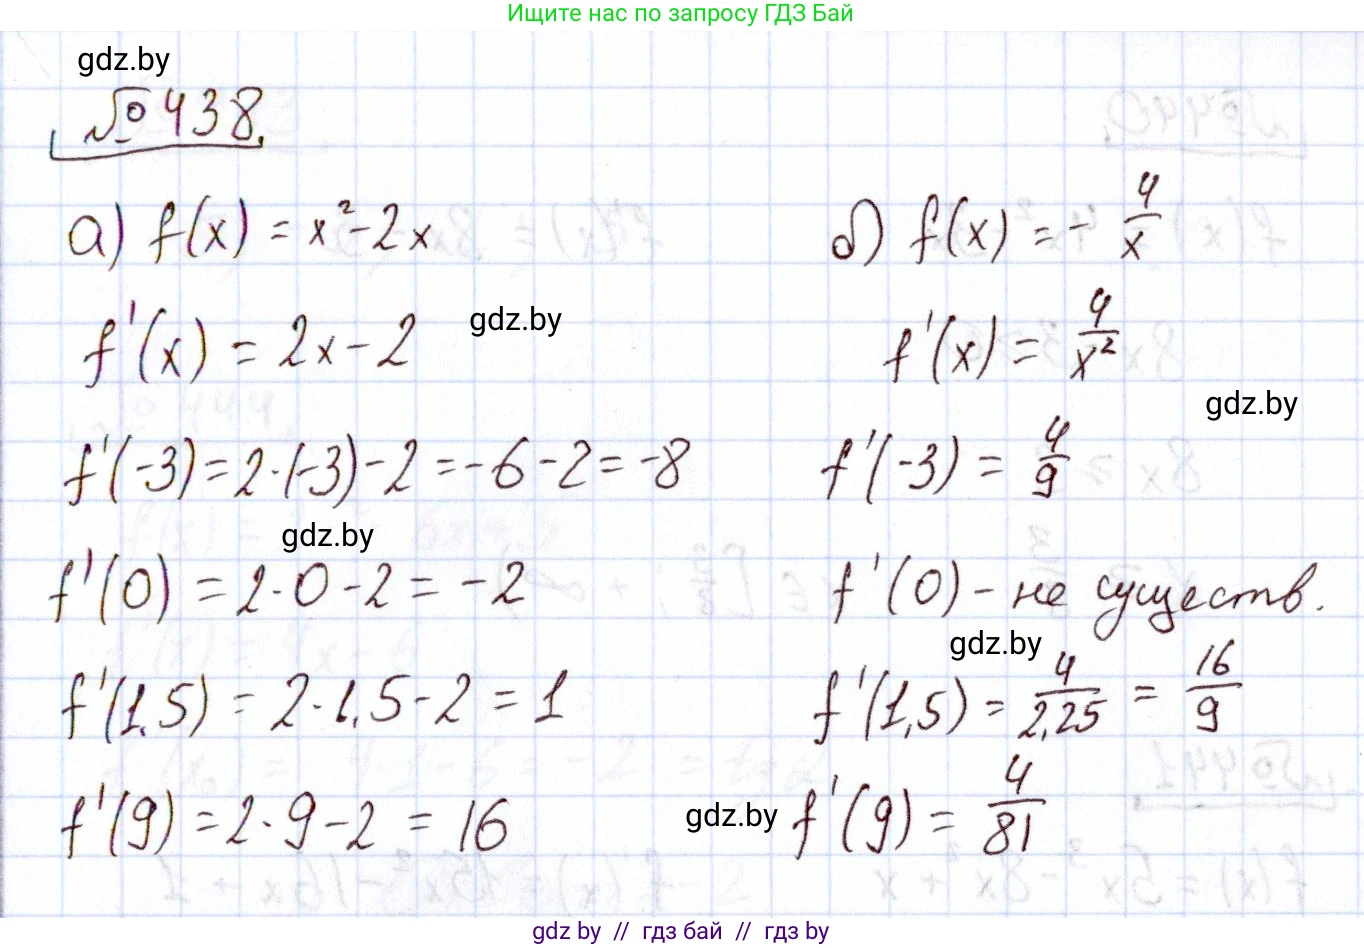 Ищите нас по запросу ГДЗ Бай
gdz.by
№438.
а) f(x) = x² - 2x
f'(x) = 2x - 2
gdz.by
f'(-3) = 2·(-3) - 2 = -6 - 2 = -8
gdz.by
f'(0) = 2·0 - 2 = -2
f'(1,5) = 2·1,5 - 2 = 1
f'(9) = 2·9 - 2 = 16
б) f(x) = - 4/x
f'(x) = 4/x²
gdz.by
f'(-3) = 4/9
f'(0) - не существ.
gdz.by
f'(1,5) = 4/2,25 = 16/9
gdz.by
f'(9) = 4/81
gdz by // гдз бай // гдз by